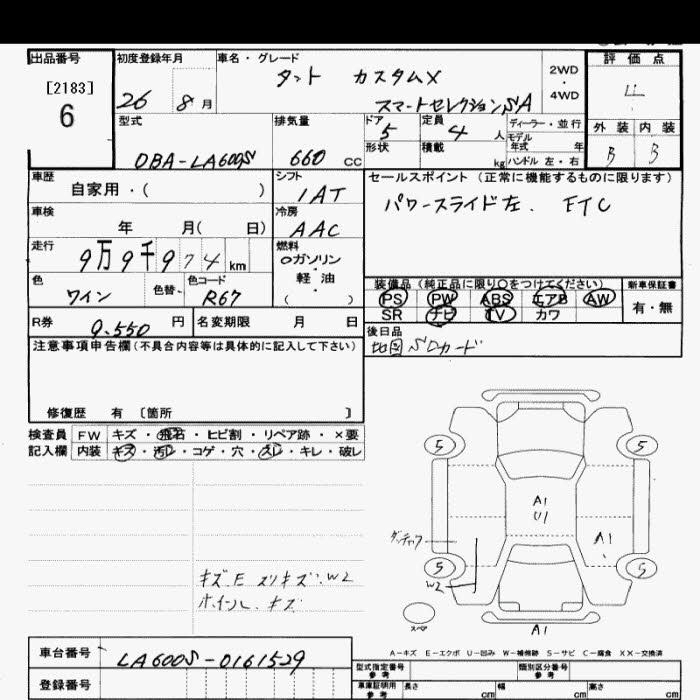 出品番号
[2183]
6
初度登録年月
26 8 月
車名・グレード
タント カスタムX
スマートセレクションSA
2WD
・
4WD
評価点
4
外装 内装
B B
型式
DBA-LA600S
排気量
660 CC
ドア 5
形状
定員 4 人
積載 kg
ディーラー・並行
モデル
年式 年
ハンドル 左・右
車歴
自家用・( )
シフト
IAT
セールスポイント (正常に機能するものに限ります)
パワースライド左. ETC
車検
年 月( 日)
冷房
AAC
走行
9万9千974 km
燃料
ガソリン
・
軽油
・
( )
色
ワイン
色替
色コード
R67
装備品(純正品に限り○をつけてください)
PS PW ABS エアB AW
SR ナビ TV カワ
新車保証書
有・無
R券
9.550 円
名変期限 月 日
後日品
地図SDカード
注意事項申告欄(不具合内容等は具体的に記入して下さい)
修復歴 有 〔箇所 〕
検査員
記入欄
FW キズ・飛石・ヒビ割・リペア跡・×要
内装 キズ・汚レ・コゲ・穴・スレ・キレ・破レ
キズ.E スリキズ.W2
ホイール キズ
5
5
5
5
A1
U1
A1
W2
A1
スペア
A-キズ E-エクボ U-凹み W-補修跡 S-サビ C-腐食 XX-交換済
車台番号
LA600S-0161529
登録番号
型式指定番号
参考
類別区分番号
参考
車庫証明用
参考
長さ cm
幅 cm
高さ cm